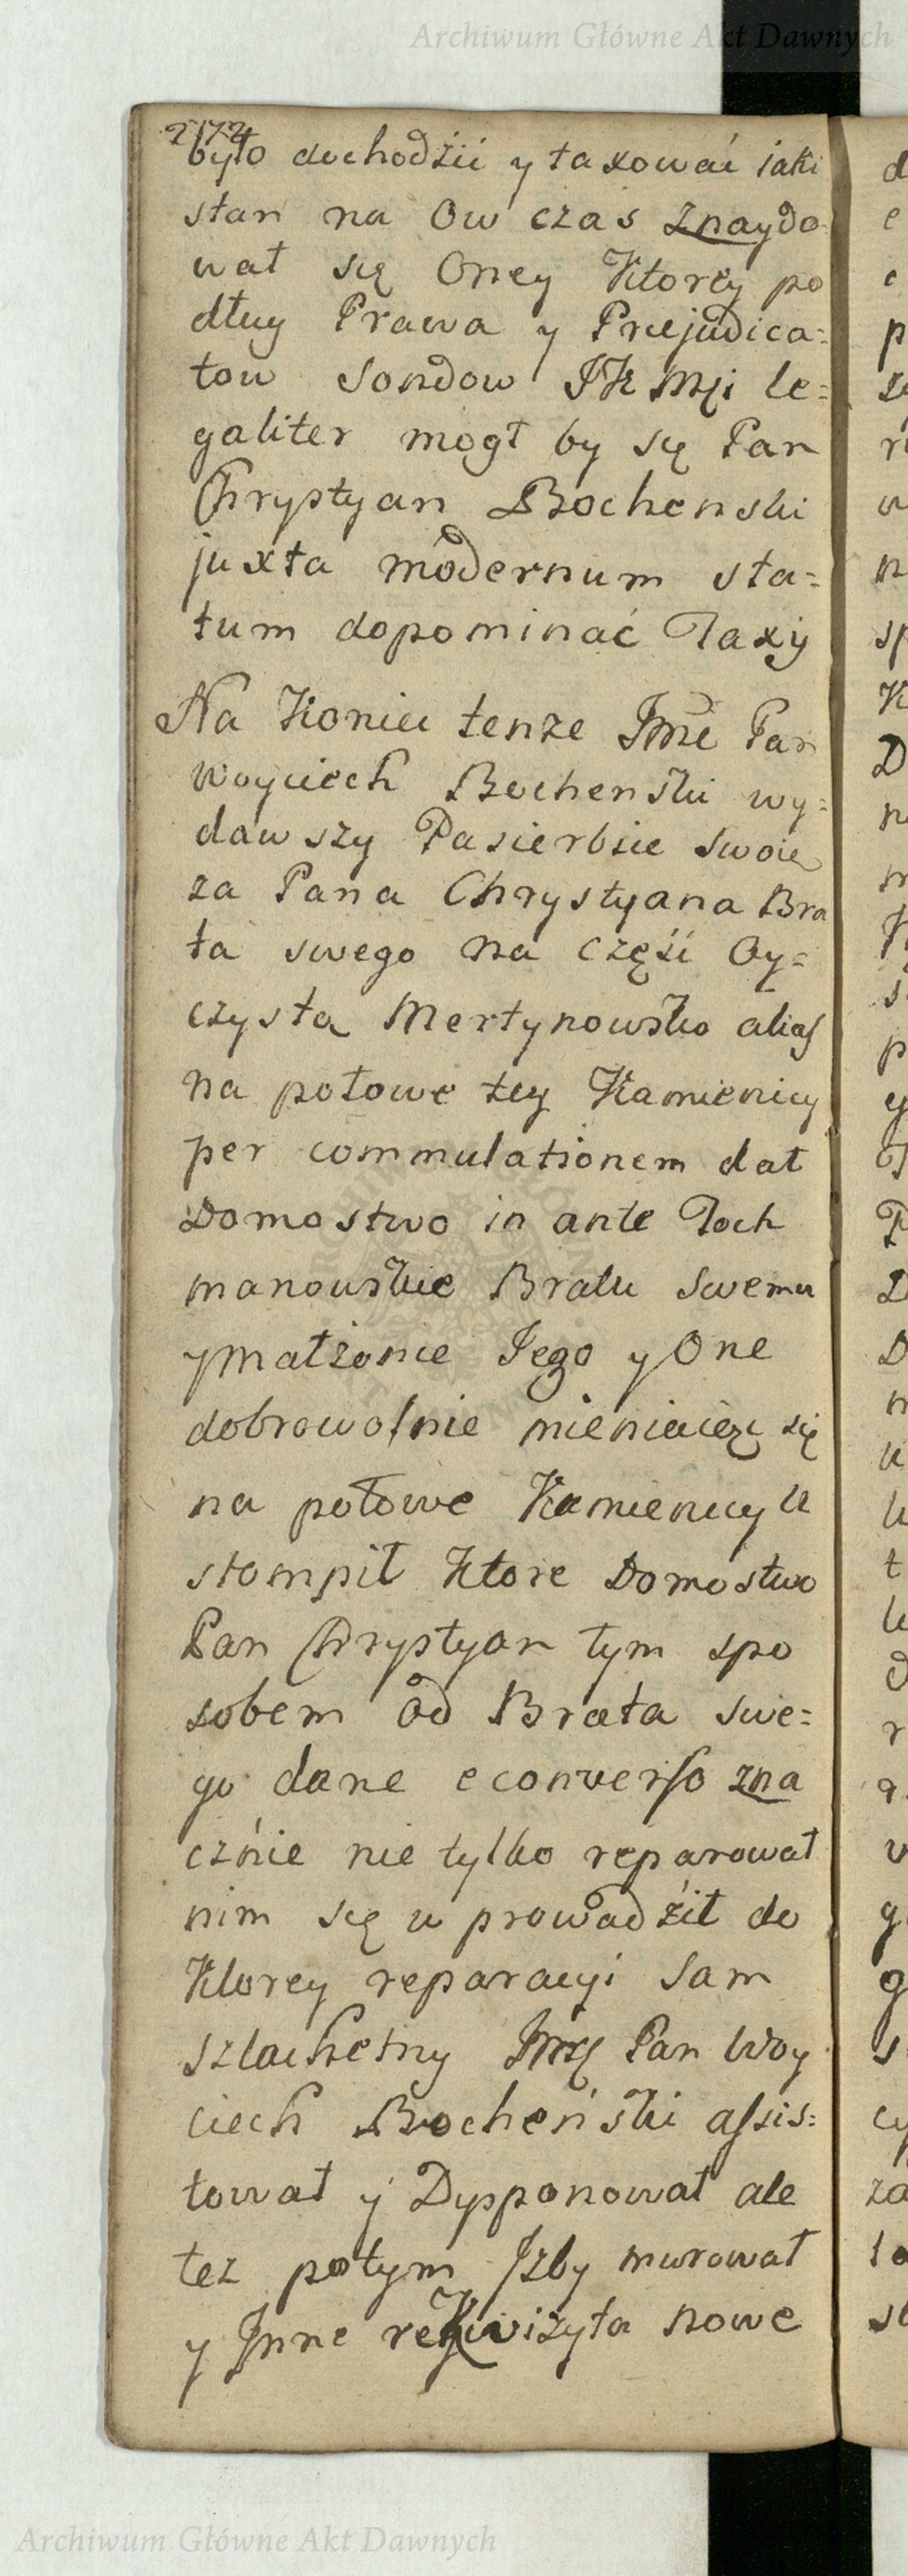 Archiwum Główne Akt Dawnych
było dochodźić y taxować jaki
stan na Ow czas znaydo
wał się Oney Ktorey po
dług Prawa y Prejudica=
tow Sondow JK Mći le=
galiter mogł by się Pan
Chrystyan Bochenski
juxta modernum sta=
tum dopominać Taxy
Na Koniec tenze Jmć Pan
Woyciech Bochenski wy=
dawszy Pasierbice swoię
za Pana Chrystyana Bra
ta swego na częśi Oy=
czysta Mertynowsko alias
na połowe tey Kamienicy
per commulationem dał
Domostwo in ante Toch
manowskie Bratu swemu
y Małżonie Jego y One
dobrowolnie mieniaięc się
na połowe Kamienicy u
stompił Ktore Domostwo
Pan Chrystyan tym spo
sobem od Brata swe=
go dane econverso zna
cznie nie tylko reparował
nim się w prowadźił do
Ktorey reparacyi Sam
szlachetny Jmć Pan Woy
ciech Bocheński assis=
tował y Dysponował ale
tez potym Jzby murował
y Jnne rekwizyta nowe
Archiwum Główne Akt Dawnych